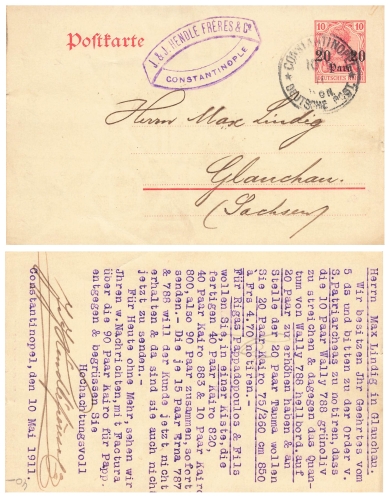 Postkarte
J. & J. HENDLÉ FRÈRES & Co
CONSTANTINOPLE
10 10
20 20
Para
CONSTANTINOPEL
DEUTSCHE POST
Herrn Max Lindig
Glauchau.
(Sachsen)
Herrn Max Lindig in Glauchau.
Wir besitzen Jhr Geehrtes vom
5 ds und bitten zu der Order v.
S.Patriachéas zu notiren, dass
die 10 Paar Wally 783 grünoliv
zu streichen & dagegen das Quan-
tum von Wally 768 hellbord.auf
20 Paar zu erhöhen haben & an
Stelle der 20 Paar Tauma wollen
Sie 20 Paar Kairo 73/360 cm 850
à Frs 4.70 notiren.-
Für Rigas Pappadopoulos & Fils
wollen Sie, in eine Kiste, die
fertigen 40 Paar Kairo 820,
40 Paar Kairo 883 & 10 Paar Kairo
800, also 90 Paar zusammen, sofort
senden.- Die je 10 Paar Erna 787
& 788 will der Kunde jetzt nicht
erhalten & da sind sie auch nicht
jetzt zu senden.-
Für Heute ohne Mehr, sehen wir
Jhren w.Nachrichten, mit Factura
über die 90 Paar Kairo für Papp.
entgegen & begrüssen Sie
Hochachtungsvoll
Constantinopel, den 10 Mai 1911.